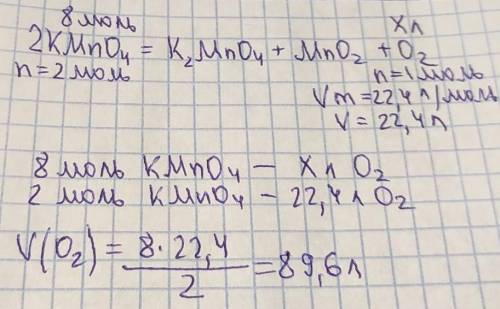 8 моль Xл
2KMnO4 = K2MnO4 + MnO2 + O2
n = 2 моль n = 1 моль
Vm = 22,4 л/моль
V = 22,4 л
8 моль KMnO4 — X л O2
2 моль KMnO4 – 22,4 л O2
V(O2) = 8·22,4 / 2 = 89,6 л